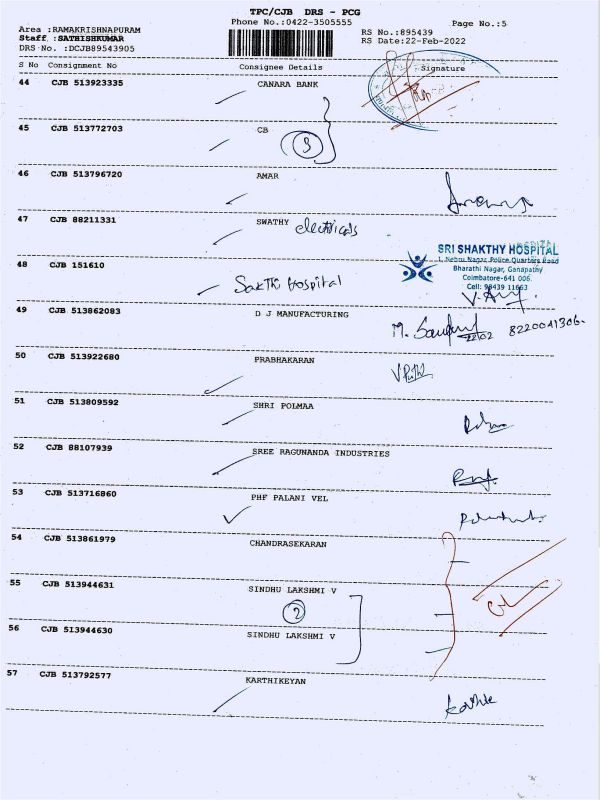 TPC/CJB DRS - PCG
Phone No.:0422-3505555
Page No.:5
Area :RAMAKRISHNAPURAM
Staff :SATHISHKUMAR
DRS No. :DCJB89543905
RS No.:895439
RS Date:22-Feb-2022
S No Consignment No Consignee Details Signature
44 CJB 513923335 CANARA BANK
45 CJB 513772703 CB
3
46 CJB 513796720 AMAR
47 CJB 88211331 SWATHY electricals
SRI SHAKTHY HOSPITAL
1, Nehru Nagar, Police Quarters Road
Bharathi Nagar, Ganapathy
Coimbatore-641 006.
Cell: 98439 11663
48 CJB 151610 Sakthi Hospital
49 CJB 513862083 D J MANUFACTURING
22/02 8220041306
50 CJB 513922680 PRABHAKARAN
51 CJB 513809592 SHRI POLMAA
52 CJB 88107939 SREE RAGUNANDA INDUSTRIES
53 CJB 513716860 PHF PALANI VEL
54 CJB 513861979 CHANDRASEKARAN
55 CJB 513944631 SINDHU LAKSHMI V
2
56 CJB 513944630 SINDHU LAKSHMI V
57 CJB 513792577 KARTHIKEYAN